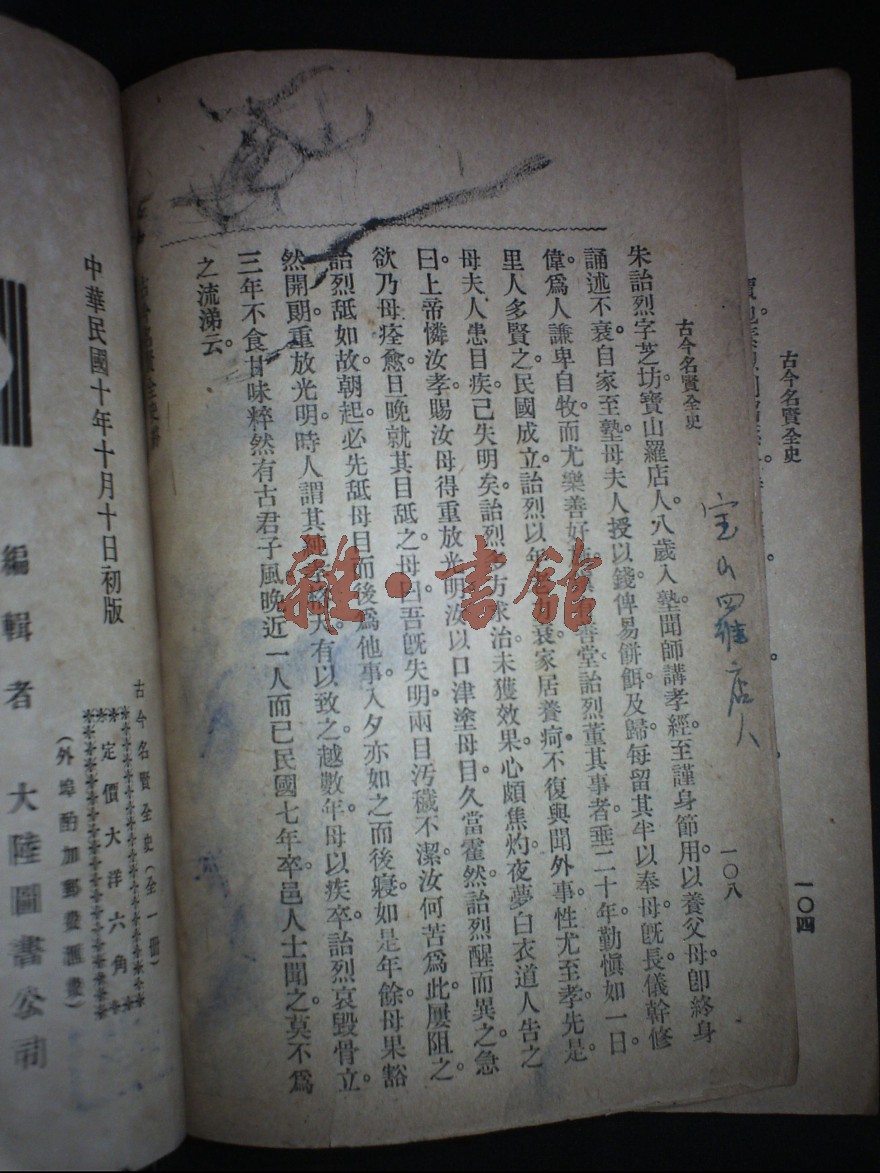 古今名賢全史
一〇四
古今名賢全史
一〇八
宝山罗店人
朱詒烈字芝坊寶山羅店人。八歲入塾聞師講孝經至謹身節用。以養父母。卽終身
誦述不衰。自家至塾。母夫人授以錢俾易餅餌。及歸。每留其半以奉母。旣長。儀幹修
偉。爲人謙卑自牧。而尤樂善好 善堂詒烈董其事者。垂二十年。勤愼如一日。
里人多賢之。民國成立。詒烈以年 衰家居養疴。不復與聞外事。性尤至孝。先是。
母夫人患目疾。已失明矣。詒烈多方求治。未獲效果。心頗焦灼。夜夢白衣道人告之
曰。上帝憐汝孝。賜汝母得重放光明。汝以口津塗母目。久當霍然。詒烈醒而異之。急
欲乃母痊愈。旦晚就其目舐之。母曰。吾旣失明。兩目汚穢不潔。汝何苦爲此。屢阻之。
詒烈舐如故。朝起。必先舐母目。而後爲他事。入夕亦如之。而後寢。如是年餘。母果豁
然開朗。重放光明。時人謂其純孝格天有以致之。越數年。母以疾卒。詒烈哀毀骨立。
三年不食甘味。粹然有古君子風。晚近一人而已。民國七年卒。邑人士聞之。莫不爲
之流涕云。
雜·書館
古今名賢全史
中華民國十年十月十日初版
古今名賢全史(全一冊)
定價大洋六角
(外埠酌加郵費滙費)
編輯者 大陸圖書公司